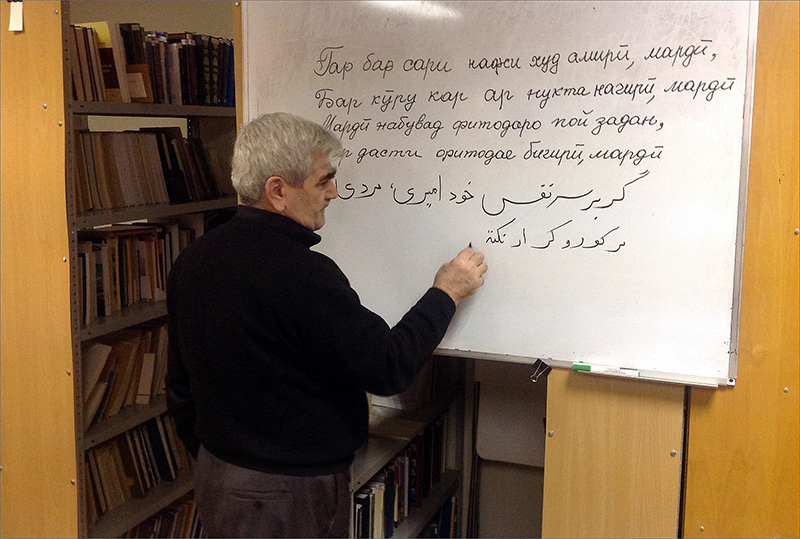 Гар бар сари нафси худ амирӣ, мардӣ,
Бар кӯру кар ар нукта нагирӣ, мардӣ
Мардӣ набувад фитодаро пой задан,
дасти фитодае бигирӣ, мардӣ
گر بر سر نفس خود امیری، مردی
بر کور و کر ار نکتة